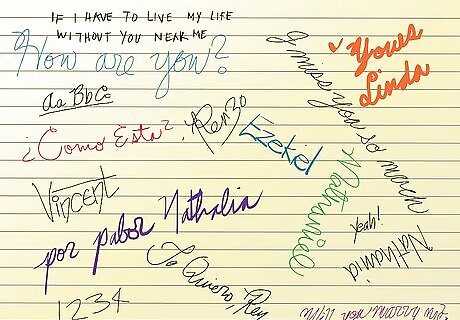 IF I HAVE TO LIVE MY LIFE
WITHOUT YOU NEAR ME
How are you?
Yours
Linda
I miss you so much
aa Bb Cc
Renzo
¿Como Esta?
Ezekiel
Nathaniel
Vincent
por pabor Nathalia
Yeah!
Nathania
Ja Quiero, Rey
1234
Will you marry me?